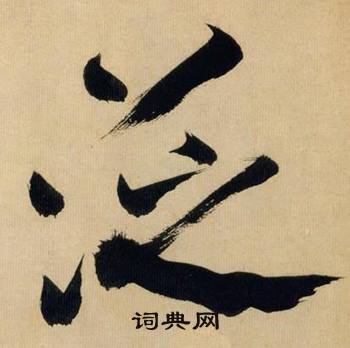 泛
词典网